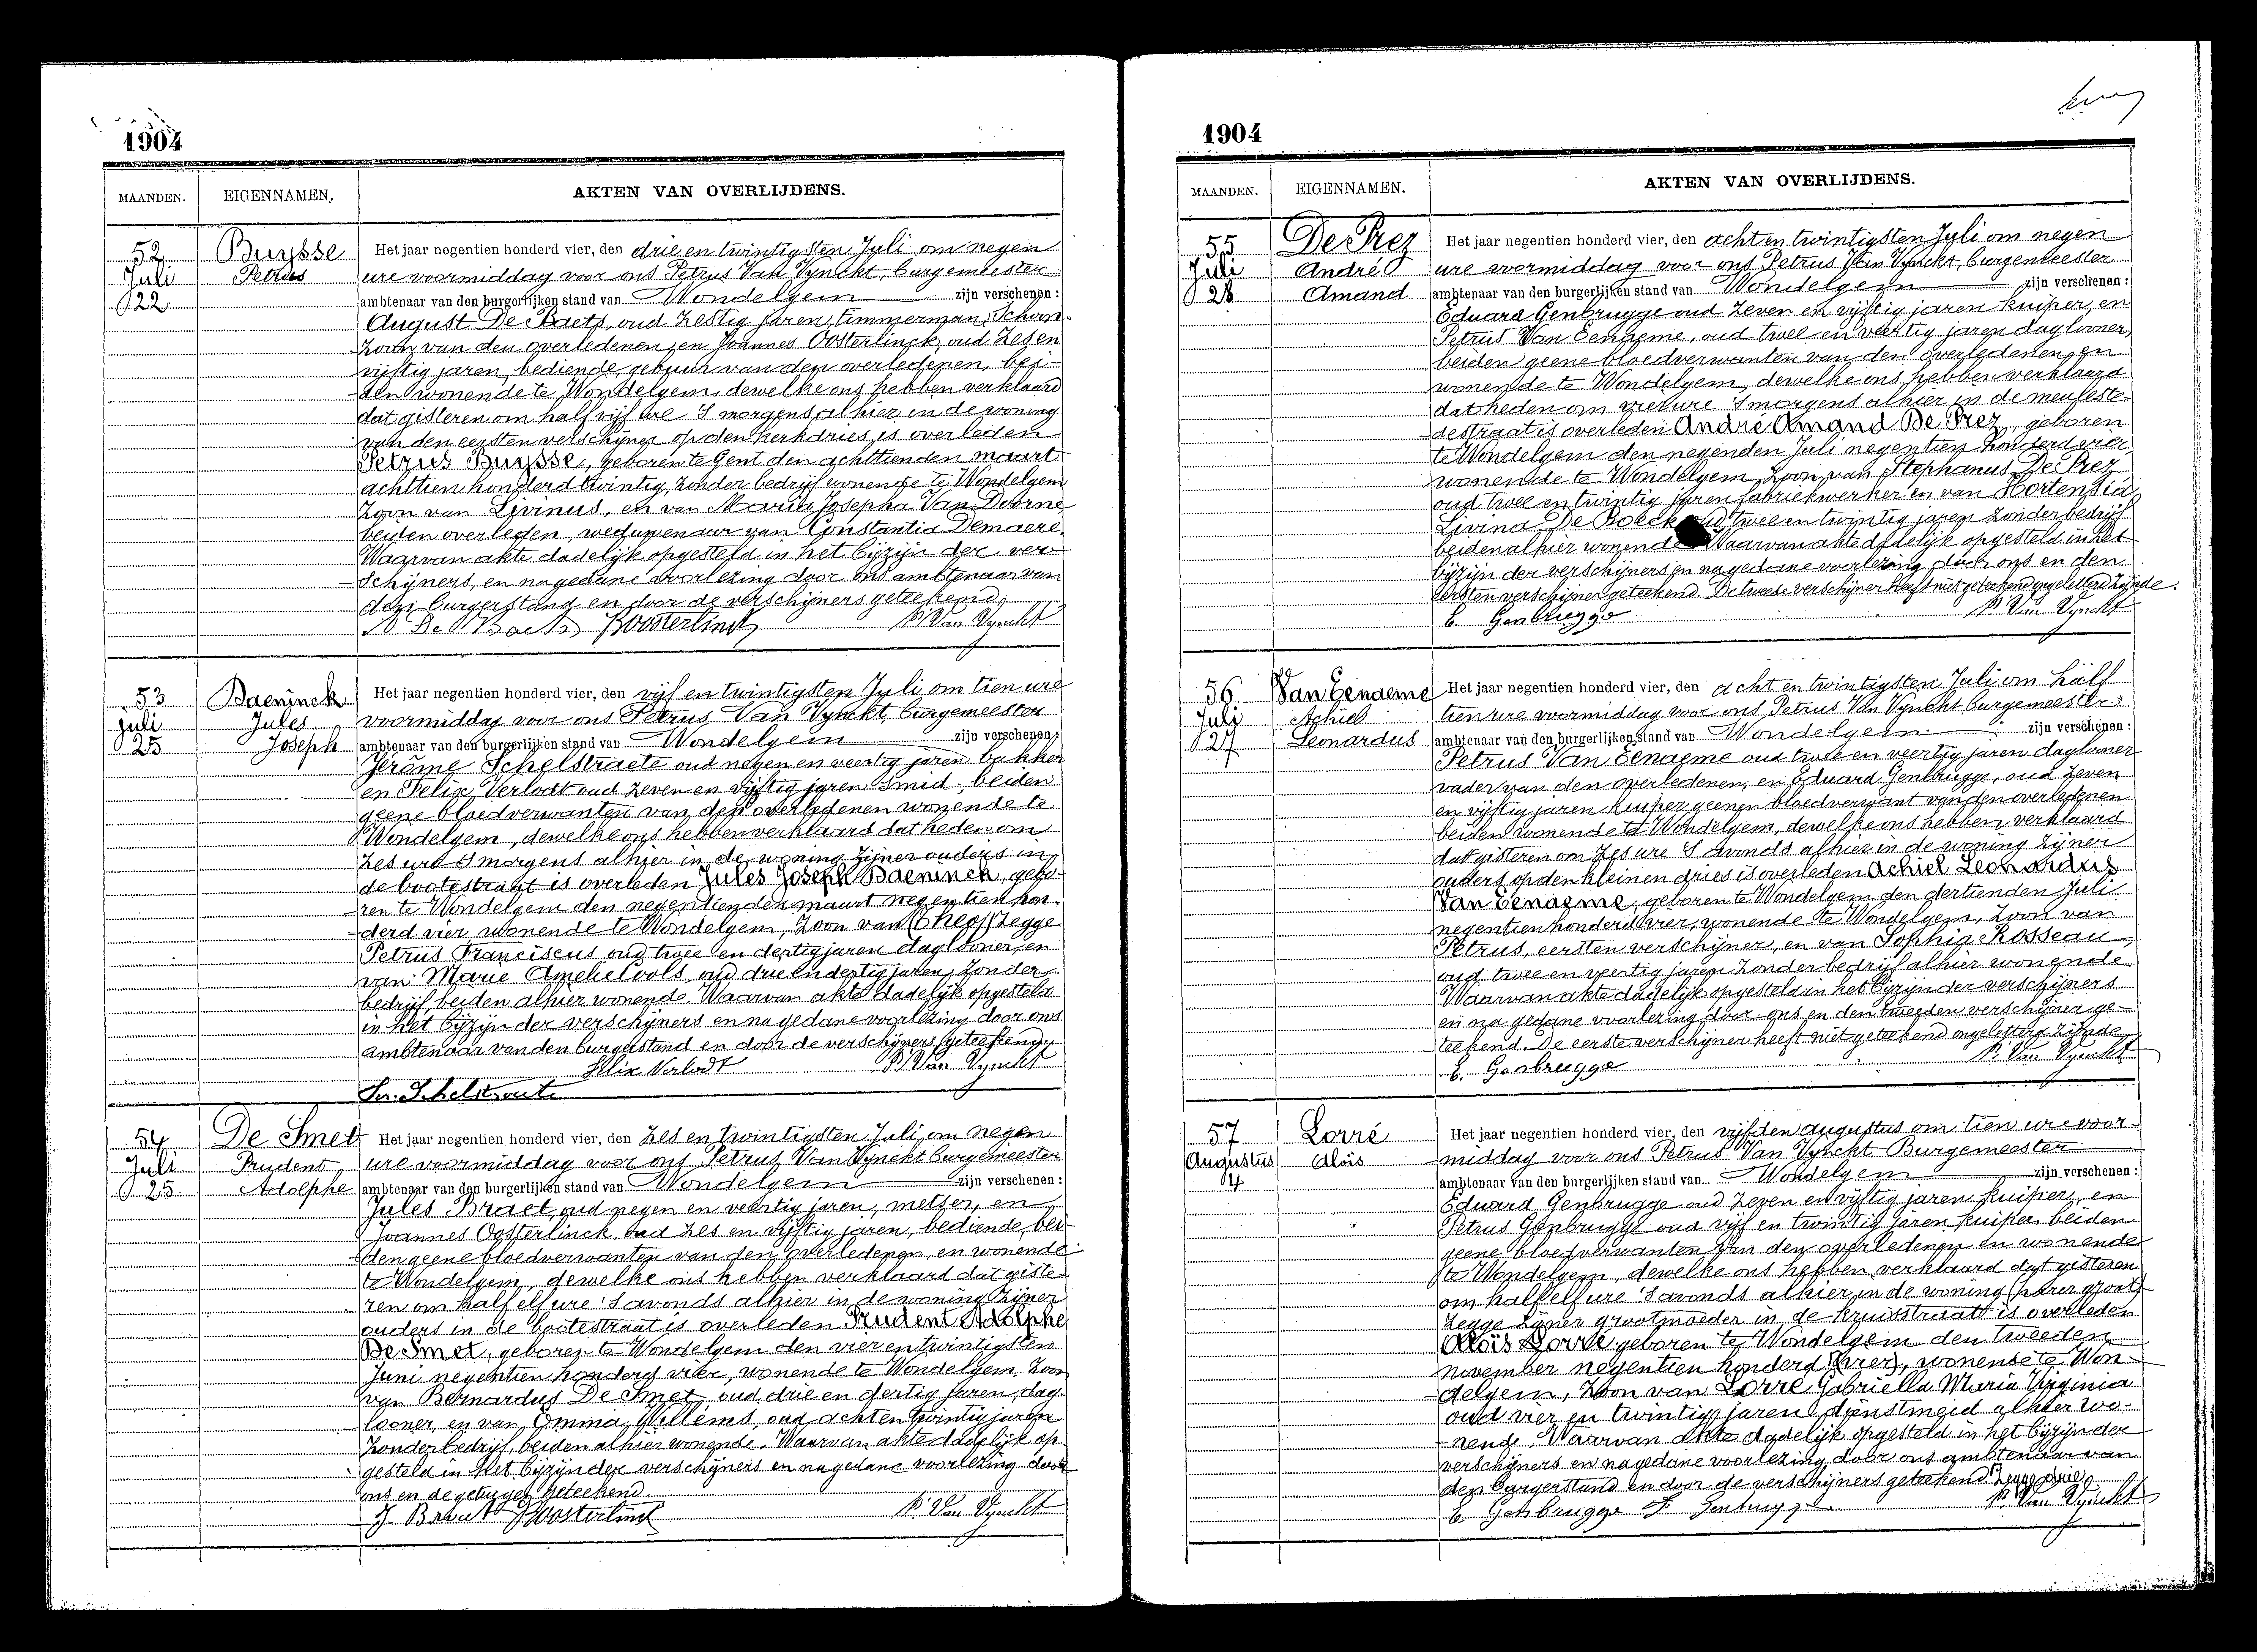 1904
MAANDEN. EIGENNAMEN. AKTEN VAN OVERLIJDENS.
52 Buysse Het jaar negentien honderd vier, den drie en twintigsten Juli om negen
Juli Petrus ure voormiddag voor ons Petrus Van Vynckt, burgemeester
22 ambtenaar van den burgerlijken stand van Wondelgem zijn verschenen:
August De Baets, oud zestig jaren, timmerman, schoon-
zoon van den overledenen, en Joannes Oosterlinck, oud zes en
vijftig jaren, bediende, gebuur van den overledenen, bei-
den wonende te Wondelgem, dewelke ons hebben verklaard
dat gisteren om half vijf ure 's morgens alhier in de woning
van den eersten verschijner op den kerkdries, is overleden
Petrus Buysse, geboren te Gent den achttienden maart
achttien honderd twintig, zonder bedrijf wonende te Wondelgem
zoon van Livinus, en van Maria Josepha Van Doorne
beiden overleden, weduwenaar van Constantia Demaere
Waarvan akte dadelijk opgesteld in het bijzijn der ver-
schijners, en na gedane voorlezing door ons ambtenaar van
den burgerstand en door de verschijners geteekend,
A De Baets JOosterlinck P. Van Vynckt
53 Baeninck Het jaar negentien honderd vier, den vijf en twintigsten Juli om tien ure
juli Jules voormiddag voor ons Petrus Van Vynckt, burgemeester
25 Joseph ambtenaar van den burgerlijken stand van Wondelgem zijn verschenen:
Jerôme Schelstraete oud negen en veertig jaren bakker
en Felix Verlodt oud zeven en vijftig jaren smid, beiden
geene bloedverwanten van den overledenen wonende te
Wondelgem, dewelke ons hebben verklaard dat heden om
zes ure 's morgens alhier in de woning zijner ouders in
de bootestraat is overleden Jules Joseph Baeninck, gebo-
ren te Wondelgem den negentienden maart negentien hon-
derd vier wonende te Wondelgem, zoon van (Theo) zegge
Petrus Franciscus oud twee en dertig jaren daglooner, en
van Marie Amelie Cools, oud drie en dertig jaren, zonder
bedrijf, beiden alhier wonende. Waarvan akte dadelijk opgesteld
in het bijzijn der verschijners en na gedane voorlezing door ons
ambtenaar van den burgerstand en door de verschijners geteekend,
Felix Verlodt P. Van Vynckt
Schelstraete
54 De Smet Het jaar negentien honderd vier, den zes en twintigsten Juli om negen
Juli Prudent ure voormiddag voor ons Petrus Van Vynckt burgemeester
25 Adolphe ambtenaar van den burgerlijken stand van Wondelgem zijn verschenen:
Jules Braet, oud negen en veertig jaren, metser, en
Joannes Oosterlinck, oud zes en vijftig jaren, bediende, bei-
den geene bloedverwanten van den overledenen, en wonende
te Wondelgem, dewelke ons hebben verklaard dat giste-
ren om half elf ure 's avonds alhier in de woning zijner
ouders in de bootestraat is overleden Prudent Adolphe
De Smet, geboren te Wondelgem den vier en twintigsten
Juni negentien honderd vier, wonende te Wondelgem. Zoon
van Bernardus De Smet, oud drie en dertig jaren, dag-
looner, en van Emma Willems, oud acht en twintig jaren
zonder bedrijf, beiden alhier wonende. Waarvan akte dadelijk op-
gesteld in het bijzijn der verschijners en na gedane voorlezing door
ons en de getuigen geteekend
J Braet JOosterlinck P. Van Vynckt
1904
MAANDEN. EIGENNAMEN. AKTEN VAN OVERLIJDENS.
55 De Prez Het jaar negentien honderd vier, den acht en twintigsten Juli om negen
Juli André ure voormiddag voor ons Petrus Van Vynckt, burgemeester
28 Amand ambtenaar van den burgerlijken stand van Wondelgem zijn verschenen:
Eduard Genbrugge oud zeven en vijftig jaren kuiper, en
Petrus Van Eenaeme, oud twee en veertig jaren daglooner,
beiden geene bloedverwanten van den overledenen, en
wonende te Wondelgem, dewelke ons hebben verklaard
dat heden om vier ure 's morgens alhier in de meuleste-
destraat is overleden André Amand De Prez, geboren
te Wondelgem den negenden Juli negentien honderd vier
wonende te Wondelgem, zoon van Stephanus De Prez
oud twee en twintig jaren fabriekwerker en van Hortensia
Livina De Boeck oud twee en twintig jaren zonder bedrijf
beiden alhier wonende Waarvan akte dadelijk opgesteld in het
bijzijn der verschijners en na gedane voorlezing door ons en den
eersten verschijner geteekend. De tweede verschijner heeft niet geteekend ongeletterd zijnde.
E. Genbrugge P. Van Vynckt
56 Van Eenaeme Het jaar negentien honderd vier, den acht en twintigsten Juli om half
Juli Achiel tien ure voormiddag voor ons Petrus Van Vynckt burgemeester
27 Leonardus ambtenaar van den burgerlijken stand van Wondelgem zijn verschenen:
Petrus Van Eenaeme oud twee en veertig jaren daglooner
vader van den overledenen, en Eduard Genbrugge, oud zeven
en vijftig jaren kuiper geenen bloedverwant van den overledenen
beiden wonende te Wondelgem, dewelke ons hebben verklaard
dat gisteren om zes ure 's avonds alhier in de woning zijner
ouders op den kleinen dries is overleden Achiel Leonardus
Van Eenaeme, geboren te Wondelgem den dertienden Juli
negentien honderd vier, wonende te Wondelgem, zoon van
Petrus, eersten verschijner, en van Sophia Rosseau,
oud twee en veertig jaren zonder bedrijf alhier wonende
Waarvan akte dadelijk opgesteld in het bijzijn der verschijners
en na gedane voorlezing door ons en den tweeden verschijner ge-
teekend. De eerste verschijner heeft niet geteekend ongeletterd zijnde.
E. Genbrugge P. Van Vynckt
57 Lorré Het jaar negentien honderd vier, den vijfden augustus om tien ure voor-
Augustus Aloïs middag voor ons Petrus Van Vynckt Burgemeester
4 ambtenaar van den burgerlijken stand van Wondelgem zijn verschenen:
Eduard Genbrugge oud zeven en vijftig jaren kuiper, en
Petrus Genbrugge oud vijf en twintig jaren kuiper beiden
geene bloedverwanten van den overledenen en wonende
te Wondelgem, dewelke ons hebben verklaard dat gisteren
om half elf ure 's avonds alhier in de woning (harer groot)
zegge zijner grootmoeder in de kruisstraat is overleden
Aloïs Lorré geboren te Wondelgem den tweeden
november negentien honderd (vier), wonende te Won-
delgem, zoon van Lorré Gabriella Maria Virginia
oud vier en twintig jaren dienstmeid alhier wo-
nende. Waarvan akte dadelijk opgesteld in het bijzijn der
verschijners en na gedane voorlezing door ons ambtenaar van
den burgerstand en door de verschijners geteekend. zegge drie
E Genbrugge P. Genbrugge P. Van Vynckt